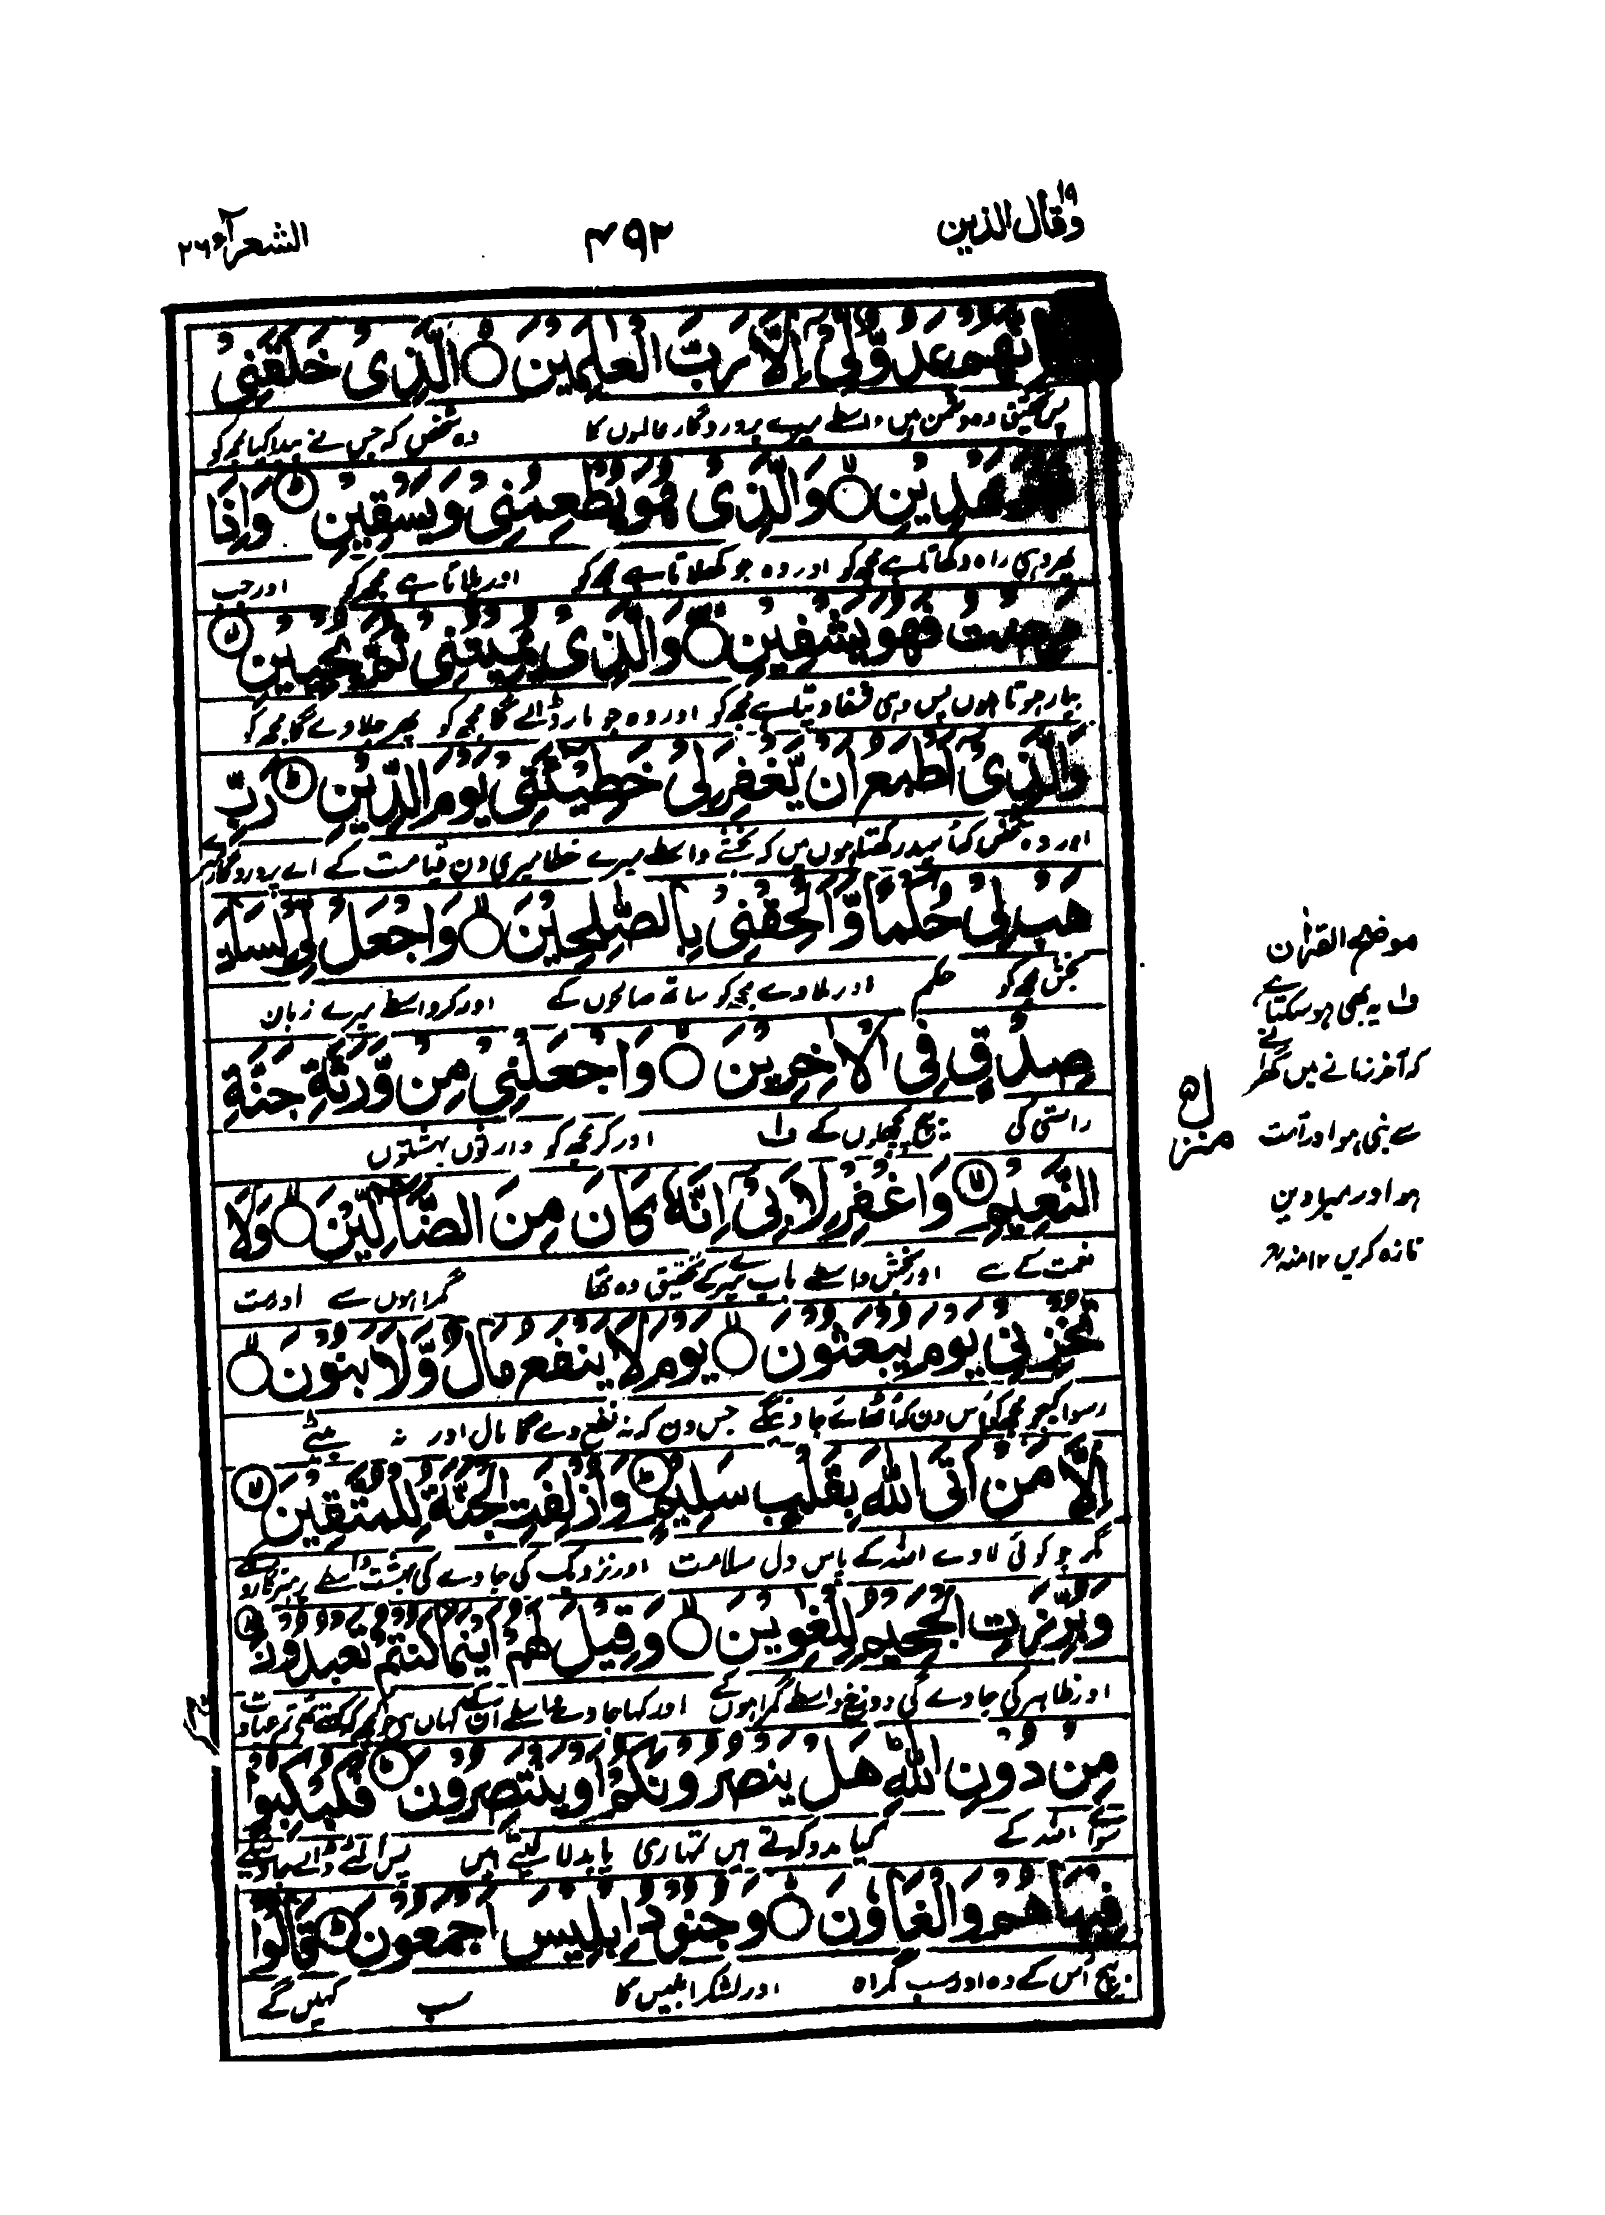 وقال الذین ۱۹
۴۹۲
الشعرآء ۲۶
فَاِنَّهُمْ عَدُوٌّ لِّیْۤ اِلَّا رَبَّ الْعٰلَمِیْنَ ۙ الَّذِیْ خَلَقَنِیْ
پس تحقیق وہ دشمن ہیں واسطے میرے پروردگار عالموں کا وہ شخص کہ جس نے پیدا کیا مجھ کو
فَهُوَ یَهْدِیْنِ ۙ وَالَّذِیْ هُوَ یُطْعِمُنِیْ وَیَسْقِیْنِ ۙ وَاِذَا
پھر وہی راہ دکھاتا ہے مجھ کو اور وہ جو کھلاتا ہے مجھ کو اور پلاتا ہے مجھ کو اور جب
مَرِضْتُ فَهُوَ یَشْفِیْنِ ۙ وَالَّذِیْ یُمِیْتُنِیْ ثُمَّ یُحْیِیْنِ ۙ
بیمار ہوتا ہوں پس وہی شفا دیتا ہے مجھ کو اور وہ جو مار ڈالے گا مجھ کو پھر جلاوے گا مجھ کو
وَالَّذِیْۤ اَطْمَعُ اَنْ یَّغْفِرَ لِیْ خَطِیْٓـَٔتِیْ یَوْمَ الدِّیْنِ ؕ رَبِّ
اور وہ شخص کہ امید رکھتا ہوں میں کہ بخشے واسطے میرے خطا میری دن قیامت کے اے پروردگار میرے
هَبْ لِیْ حُكْمًا وَّاَلْحِقْنِیْ بِالصّٰلِحِیْنَ ۙ وَاجْعَلْ لِّیْ لِسَانَ
بخش مجھ کو حکم اور ملا دے مجھ کو ساتھ صالحوں کے اور کر واسطے میرے زبان
صِدْقٍ فِی الْاٰخِرِیْنَ ۙ وَاجْعَلْنِیْ مِنْ وَّرَثَةِ جَنَّةِ
راستی کی بیچ پچھلوں کے ف۱ اور کر مجھ کو وارثوں بہشتوں
النَّعِیْمِ ۙ وَاغْفِرْ لِاَبِیْۤ اِنَّهٗ كَانَ مِنَ الضَّآلِّیْنَ ۙ وَلَا
نعمت کے سے اور بخش واسطے باپ میرے کے تحقیق وہ تھا گمراہوں سے اور مت
تُخْزِنِیْ یَوْمَ یُبْعَثُوْنَ ۙ یَوْمَ لَا یَنْفَعُ مَالٌ وَّلَا بَنُوْنَ ۙ
رسوا کیجیو مجھ کو اس دن کہ اٹھائے جاوینگے جس دن کہ نہ نفع دے گا مال اور نہ بیٹے
اِلَّا مَنْ اَتَی اللّٰهَ بِقَلْبٍ سَلِیْمٍ ؕ وَاُزْلِفَتِ الْجَنَّةُ لِلْمُتَّقِیْنَ ۙ
مگر جو کوئی لاوے اللہ کے پاس دل سلامت اور نزدیک کی جاوے گی بہشت واسطے پرہیزگاروں کے
وَبُرِّزَتِ الْجَحِیْمُ لِلْغٰوِیْنَ ۙ وَقِیْلَ لَهُمْ اَیْنَمَا كُنْتُمْ تَعْبُدُوْنَ ۙ
اور ظاہر کی جاوے گی دوزخ واسطے گمراہوں کے اور کہا جاوے گا واسطے ان کے کہاں ہیں جو کچھ کہ تھے تم عبادت کرتے
مِنْ دُوْنِ اللّٰهِ هَلْ یَنْصُرُوْنَكُمْ اَوْ یَنْتَصِرُوْنَ ؕ فَكُبْكِبُوْا
سوائے اللہ کے کیا مدد کرتے ہیں تمہاری یا بدلا لیتے ہیں پس الٹے ڈالے جاوینگے
فِیْهَا هُمْ وَالْغَاوٗنَ ۙ وَجُنُوْدُ اِبْلِیْسَ اَجْمَعُوْنَ ؕ قَالُوْا
بیچ اس کے وہ اور سب گمراہ اور لشکر ابلیس کا سب کہیں گے
موضح القرآن
ف۱ یہ بھی ہو سکتا ہے
کہ آخر زمانے میں گھرانے
سے نبی ہو اور امت
ہو اور میرا دین
تازہ کریں ۱۲ منہ رح
منزل ۵